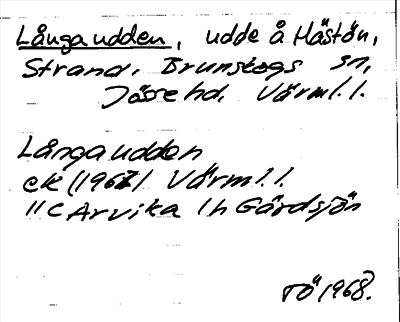 Långaudden, udde å Hästön,
Strand, Brunskogs sn,
Jösse hd. Värml. l.
Långaudden
ek (1967) Värml. l.
11C Arvika 1h Gårdsjön
TÖ 1968.